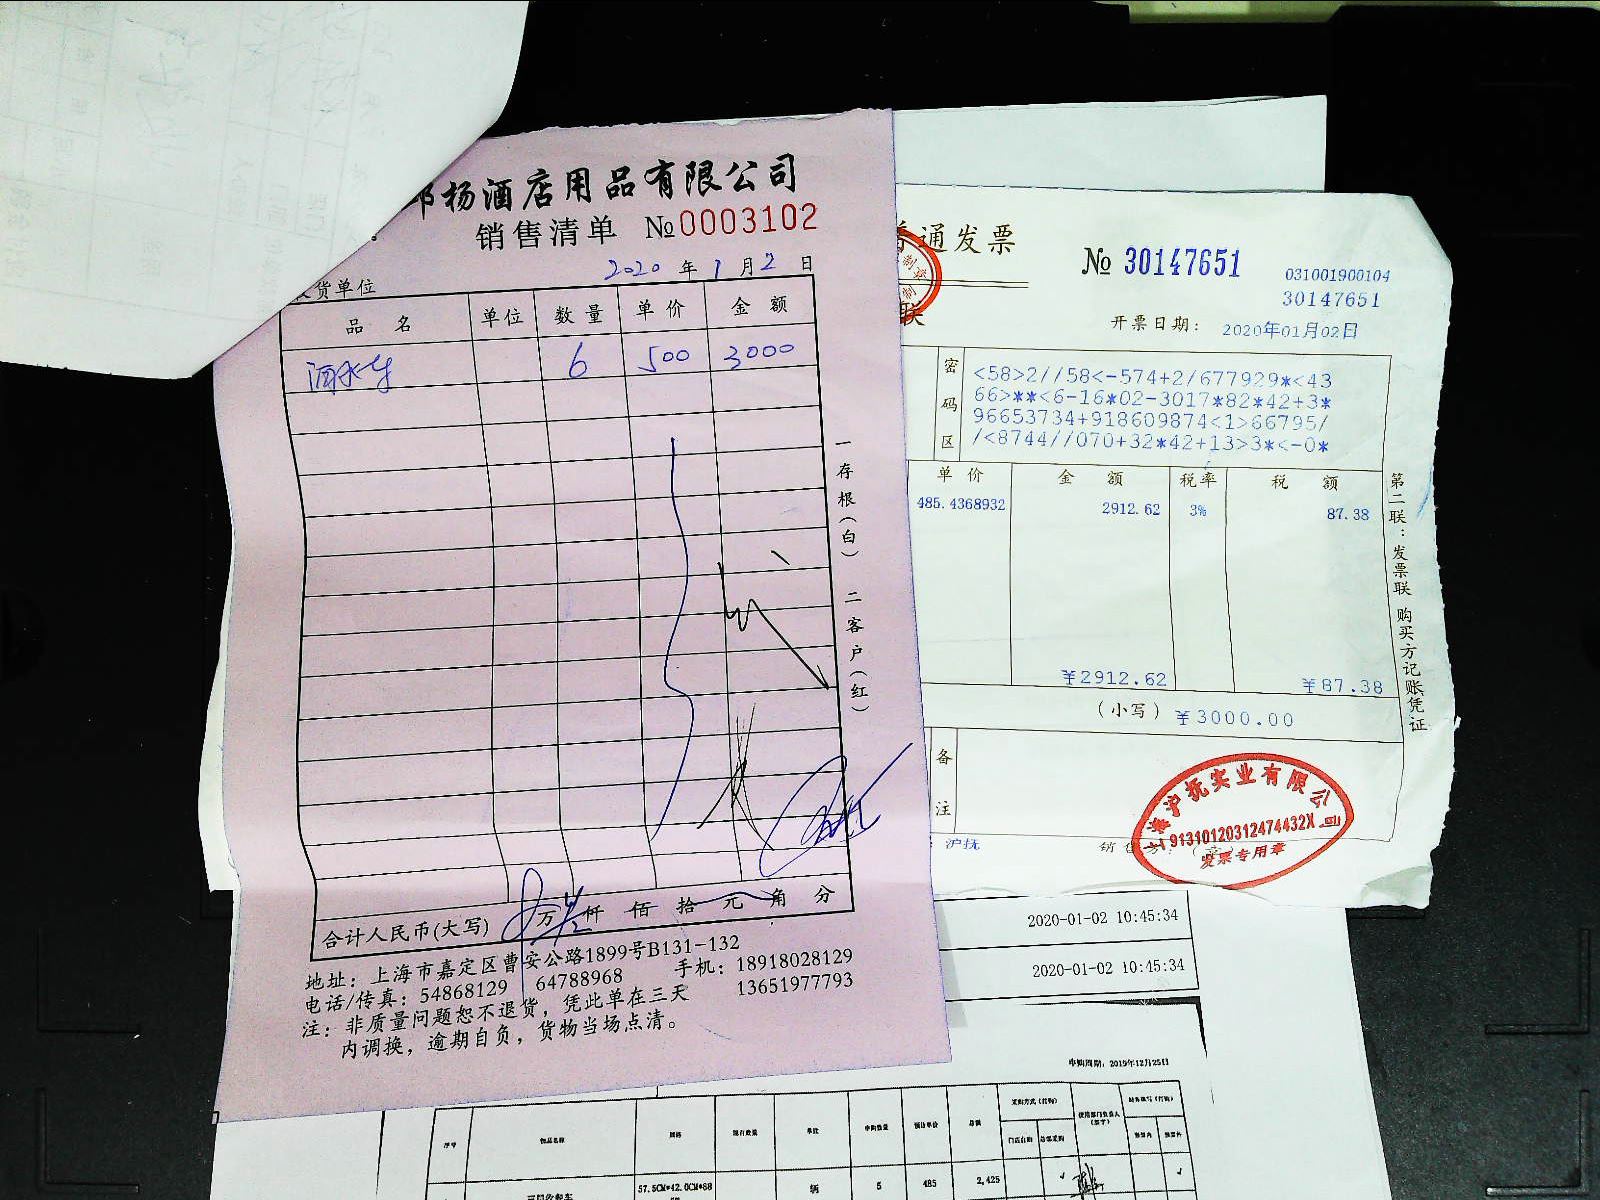 杨酒店用品有限公司
销售清单 №0003102
2020年1月2日
货单位
品名 单位 数量 单价 金额
酒水车 6 500 3000
一存根(白) 二客户(红)
合计人民币(大写) 万 仟 佰 拾 元 角 分
地址：上海市嘉定区曹安公路1899号B131-132
电话/传真：54868129 64788968 手机：18918028129
13651977793
注：非质量问题恕不退货，凭此单在三天
内调换，逾期自负，货物当场点清。
普通发票
№ 30147651
031001900104
30147651
联
开票日期： 2020年01月02日
密码区
<58>2//58<-574+2/677929*<43
66>**<6-16*02-3017*82*42+3*
96653734+918609874<1>66795/
/<8744//070+32*42+13>3*<-0*
单价 金额 税率 税额
485.4368932 2912.62 3% 87.38
¥2912.62 ¥87.38
(小写) ¥3000.00
备注
第二联：发票联 购买方记账凭证
上海沪抚实业有限公司
91310120312474432X
发票专用章
：沪抚
2020-01-02 10:45:34
2020-01-02 10:45:34
申购周期：2019年12月25日
序号 物品名称 规格 现有数量 单位 申购数量 预计单价 总额 采购方式(打钩) 使用部门负责人(签字)
门店自购 总部采购 预算内 预算外
57.5CM*42.0CM*88 辆 5 485 2,425